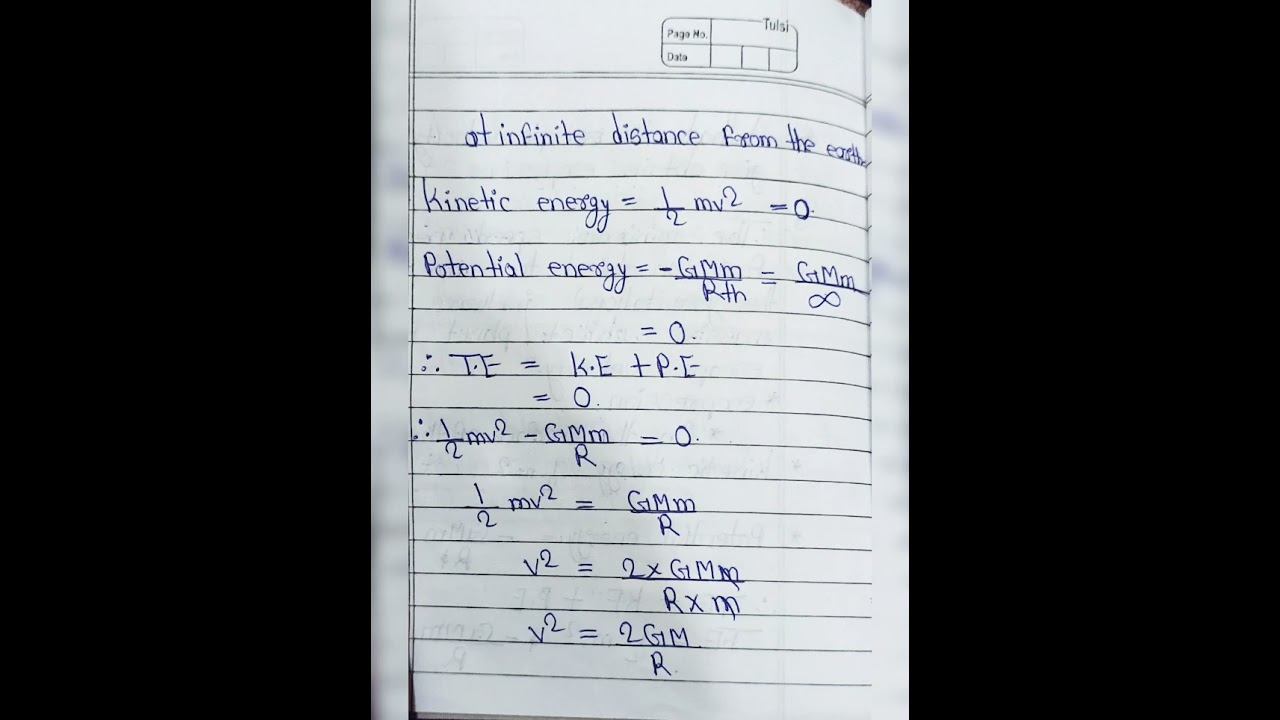 Tulsi
Page No.
Date
at infinite distance from the earth
Kinetic energy = 1/2 mv² = 0.
Potential energy = -GMm/R+h = GMm/∞
= 0.
∴ T.E = K.E + P.E
= 0.
∴ 1/2 mv² - GMm/R = 0.
1/2 mv² = GMm/R
v² = 2 × GMm/R × m
v² = 2GM/R.